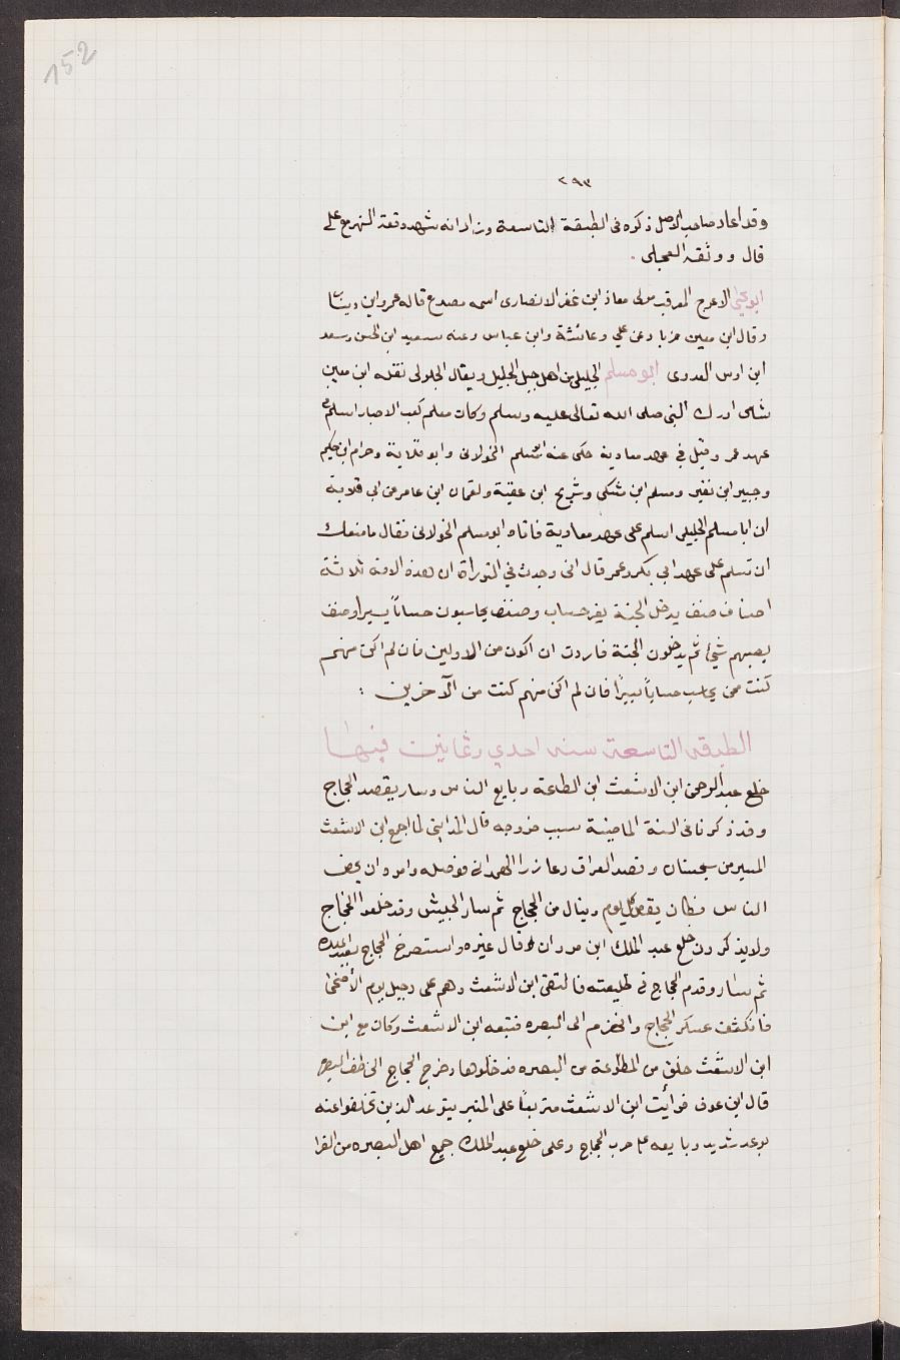 152
٢٩٣
وقد اعاد صاحب الاصل ذكره فى الطبقة التاسعة وزاد انه شهد وقعة النهر مع على
قال ووثقه العجلى .
ابو يحيى الاعرج المعرقب مولى معاذ ابن عفر الانصارى اسمه مصدع قاله عمرو ابن دينار
وقال ابن معين عن على وعائشة وابن عباس وعنه سعيد ابن الحسن وسعد
ابن اوس العدوى ابو مسلم الجليلى من اهل جبل الجليل ويقال الجلولى نقله ابن معين
شامى ادرك النبى صلى الله تعالى عليه وسلم وكان معلم كعب الاحبار اسلم فى
عهد عمر وقيل فى عهد معاوية حكى عنه مسلم الخولانى وابو قلابة وحرام ابن حكيم
وجبير ابن نفير ومسلم ابن مشكى وشريح ابن عقبة ولقمان ابن عامر عن ابى قلابة
ان ابا مسلم الجليلى اسلم على عهد معاوية فاتاه ابو مسلم الخولانى فقال ما منعك
ان تسلم على عهد ابى بكر وعمر قال انى وجدت في التوراة ان هذه الامة ثلاثة
اصناف صنف يدخل الجنة بغير حساب وصنف يحاسبون حساباً يسيرا وصنف
يصيبهم شيئ ثم يدخلون الجنة فاردت ان اكون من الاولين فان لم اكن منهم
كنت ممن يحاسب حساباً يسيرا فان لم اكن منهم كنت من الآخرين :
الطبقه التاسعة سنه احدي وثمانين فيها
خلع عبد الرحمن ابن الاشعث ابن الطاعة وبايع الناس وسار يقصد الحجاج
وقد ذكرنا فى السنة الماضية سبب خروجه قال المداينى لما اجمع ابن الاشعث
المسير من سجستان وقصد العراق دعا زرا الهمدانى فوصله وامره ان يحض
الناس فكان يقص كل يوم وينال من الحجاج ثم سار الجيش وقد خلعوا الحجاج
ولا يذكرون خلع عبد الملك ابن مروان وقال غيره واستصرخ الحجاج بعبد الملك
ثم سار وقدم الحجاج فى طليعته فالتقى ابن الاشعث وهم على دجيل يوم الأضحى
فانكشف عسكر الحجاج وانهزم الى البصره فتبعه ابن الاشعث وكان مع ابن
ابن الاشعث خلق من المطوعة من البصره فدخلوها وخرج الحجاج الى طف البصره
قال ابن عوف فرأيت ابن الاشعث متربعا على المنبر يتوعد الذين تخلفوا عنه
بوعد شديد وبايعه على حرب الحجاج وعلى خلع عبد الملك جميع اهل البصره من القرا